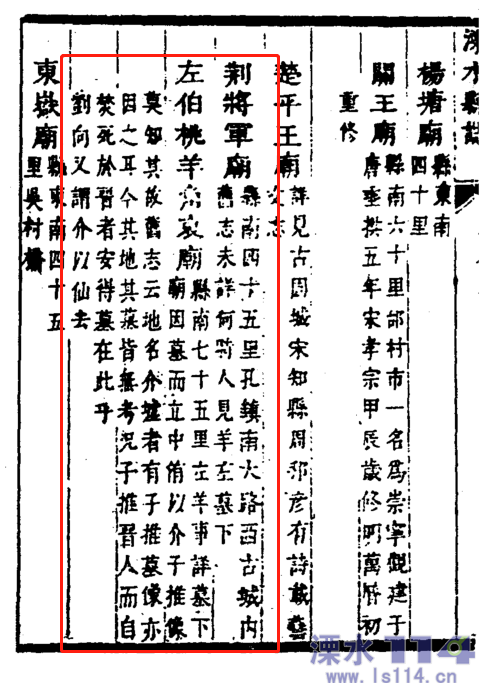 溧水縣誌
楊塘廟縣東南
四十里
關王廟縣南六十里邰村市一名爲崇寧觀建于
唐垂拱五年宋孝宗甲辰歲修明萬曆初
重修
楚平王廟詳見古固城宋知縣周邦彦有詩載藝
文志
荆將軍廟縣南四十五里孔鎮南大路西古城内
舊志未詳何時人見羊左墓下
左伯桃羊角哀廟縣南七十五里左羊事詳墓下
廟因墓而立中侑以介子推像
莫知其故舊志云地名介墟者有子推墓像亦
因之耳今其地其墓皆無考况子推晉人而自
焚死於晉者安得墓在此乎
劉向又謂介以仙去
東嶽廟縣東南四十五
里吳村橋
溧水114
www.ls114.cn